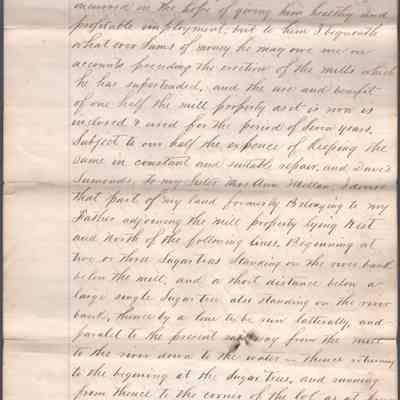 incurred in the hope of giving him healthy and
profitable employment, but to him I bequeath
what ever sums of money he may owe me on
accounts preceding the erection of the mills which
he has superintended, and the use and benefit
of one half the mill property as it is now is
inclosed & used for the period of Seven years,
Subject to one half the expence of keeping the
same in constant and suitable repair, and
to my Sister Mrs Ann I devise
that part of my land formerly Belonging to my
Father adjoining the mill property lying West
and North of the following lines, Beginning at
two or three Sugar trees Standing on the river bank
below the mill, and a short distance below a
large single Sugar tree also standing on the river
bank, thence by a line to be run latterally, and
paralel to the present from the mill
to the river down to the water — thence returning
to the begining at the Sugar trees, and running
from thence to the corner of the lot as it